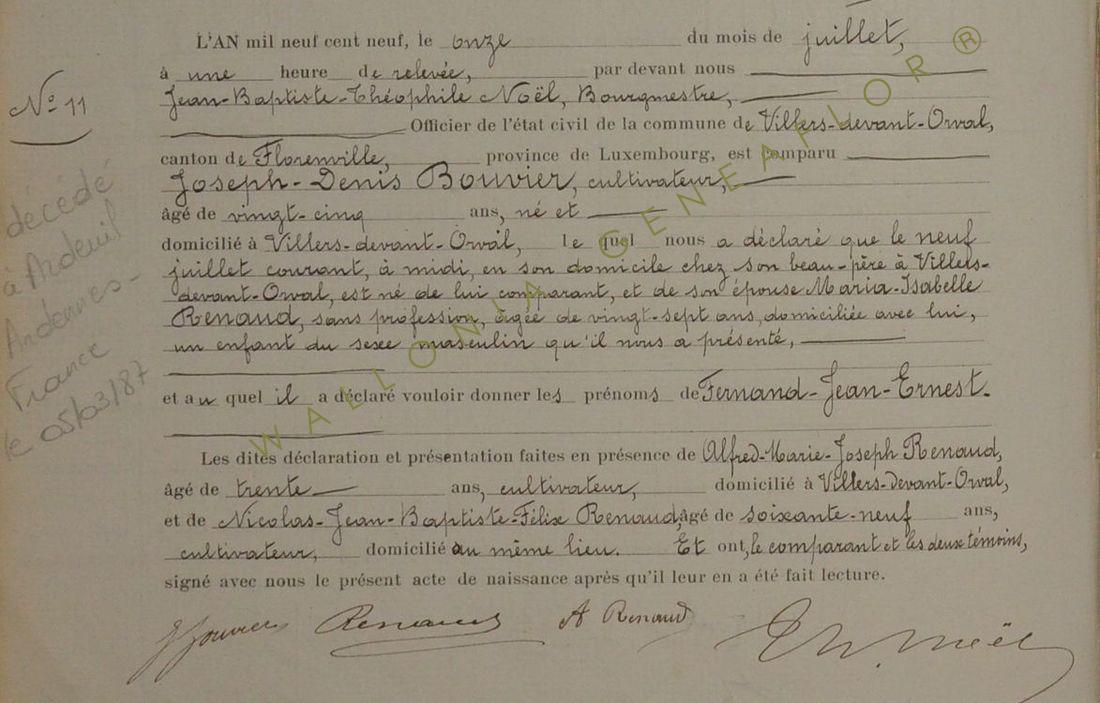 L'AN mil neuf cent neuf, le onze du mois de juillet,
à une heure de relevée, par devant nous
Jean-Baptiste-Théophile Noël, Bourgmestre,
Officier de l'état civil de la commune de Villers-devant-Orval,
canton de Florenville, province de Luxembourg, est comparu
Joseph-Denis Bouvier, cultivateur,
âgé de vingt-cinq ans, né et
domicilié à Villers-devant-Orval, lequel nous a déclaré que le neuf
juillet courant, à midi, en son domicile chez son beau-père à Villers-
devant-Orval, est né de lui comparant, et de son épouse Maria-Isabelle
Renaud, sans profession, âgée de vingt-sept ans, domiciliée avec lui,
un enfant du sexe masculin qu'il nous a présenté,
et au quel il a déclaré vouloir donner les prénoms de Fernand-Jean-Ernest.
Les dites déclaration et présentation faites en présence de Alfred-Marie-Joseph Renaud,
âgé de trente ans, cultivateur, domicilié à Villers-devant-Orval,
et de Nicolas-Jean-Baptiste-Félix Renaud, âgé de soixante-neuf ans,
cultivateur, domicilié au même lieu. Et ont, le comparant et les deux témoins,
signé avec nous le présent acte de naissance après qu'il leur en a été fait lecture.
J Bouvier Renaud A Renaud Th. Noël
No 11
décédé
à Ardeuil
Ardennes-
France
le 05/03/87
WALLONIA GENEAFLOR ®